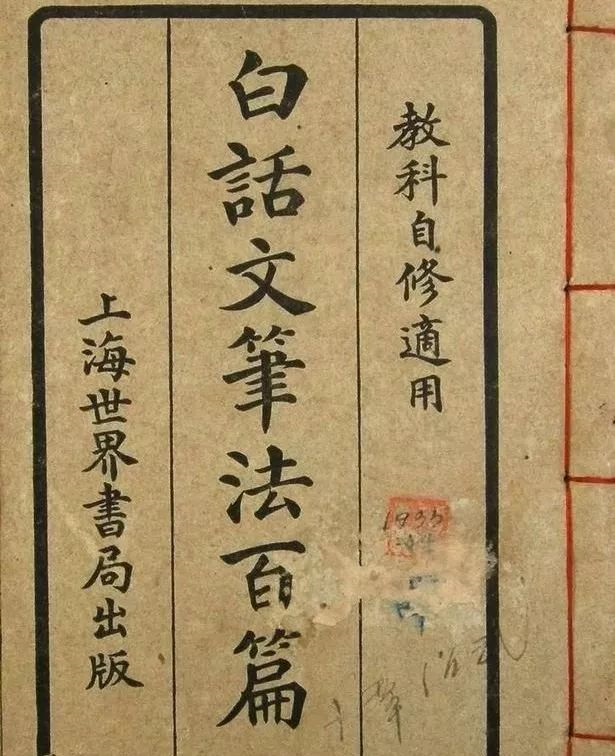 教科自修適用
白話文筆法百篇
上海世界書局出版